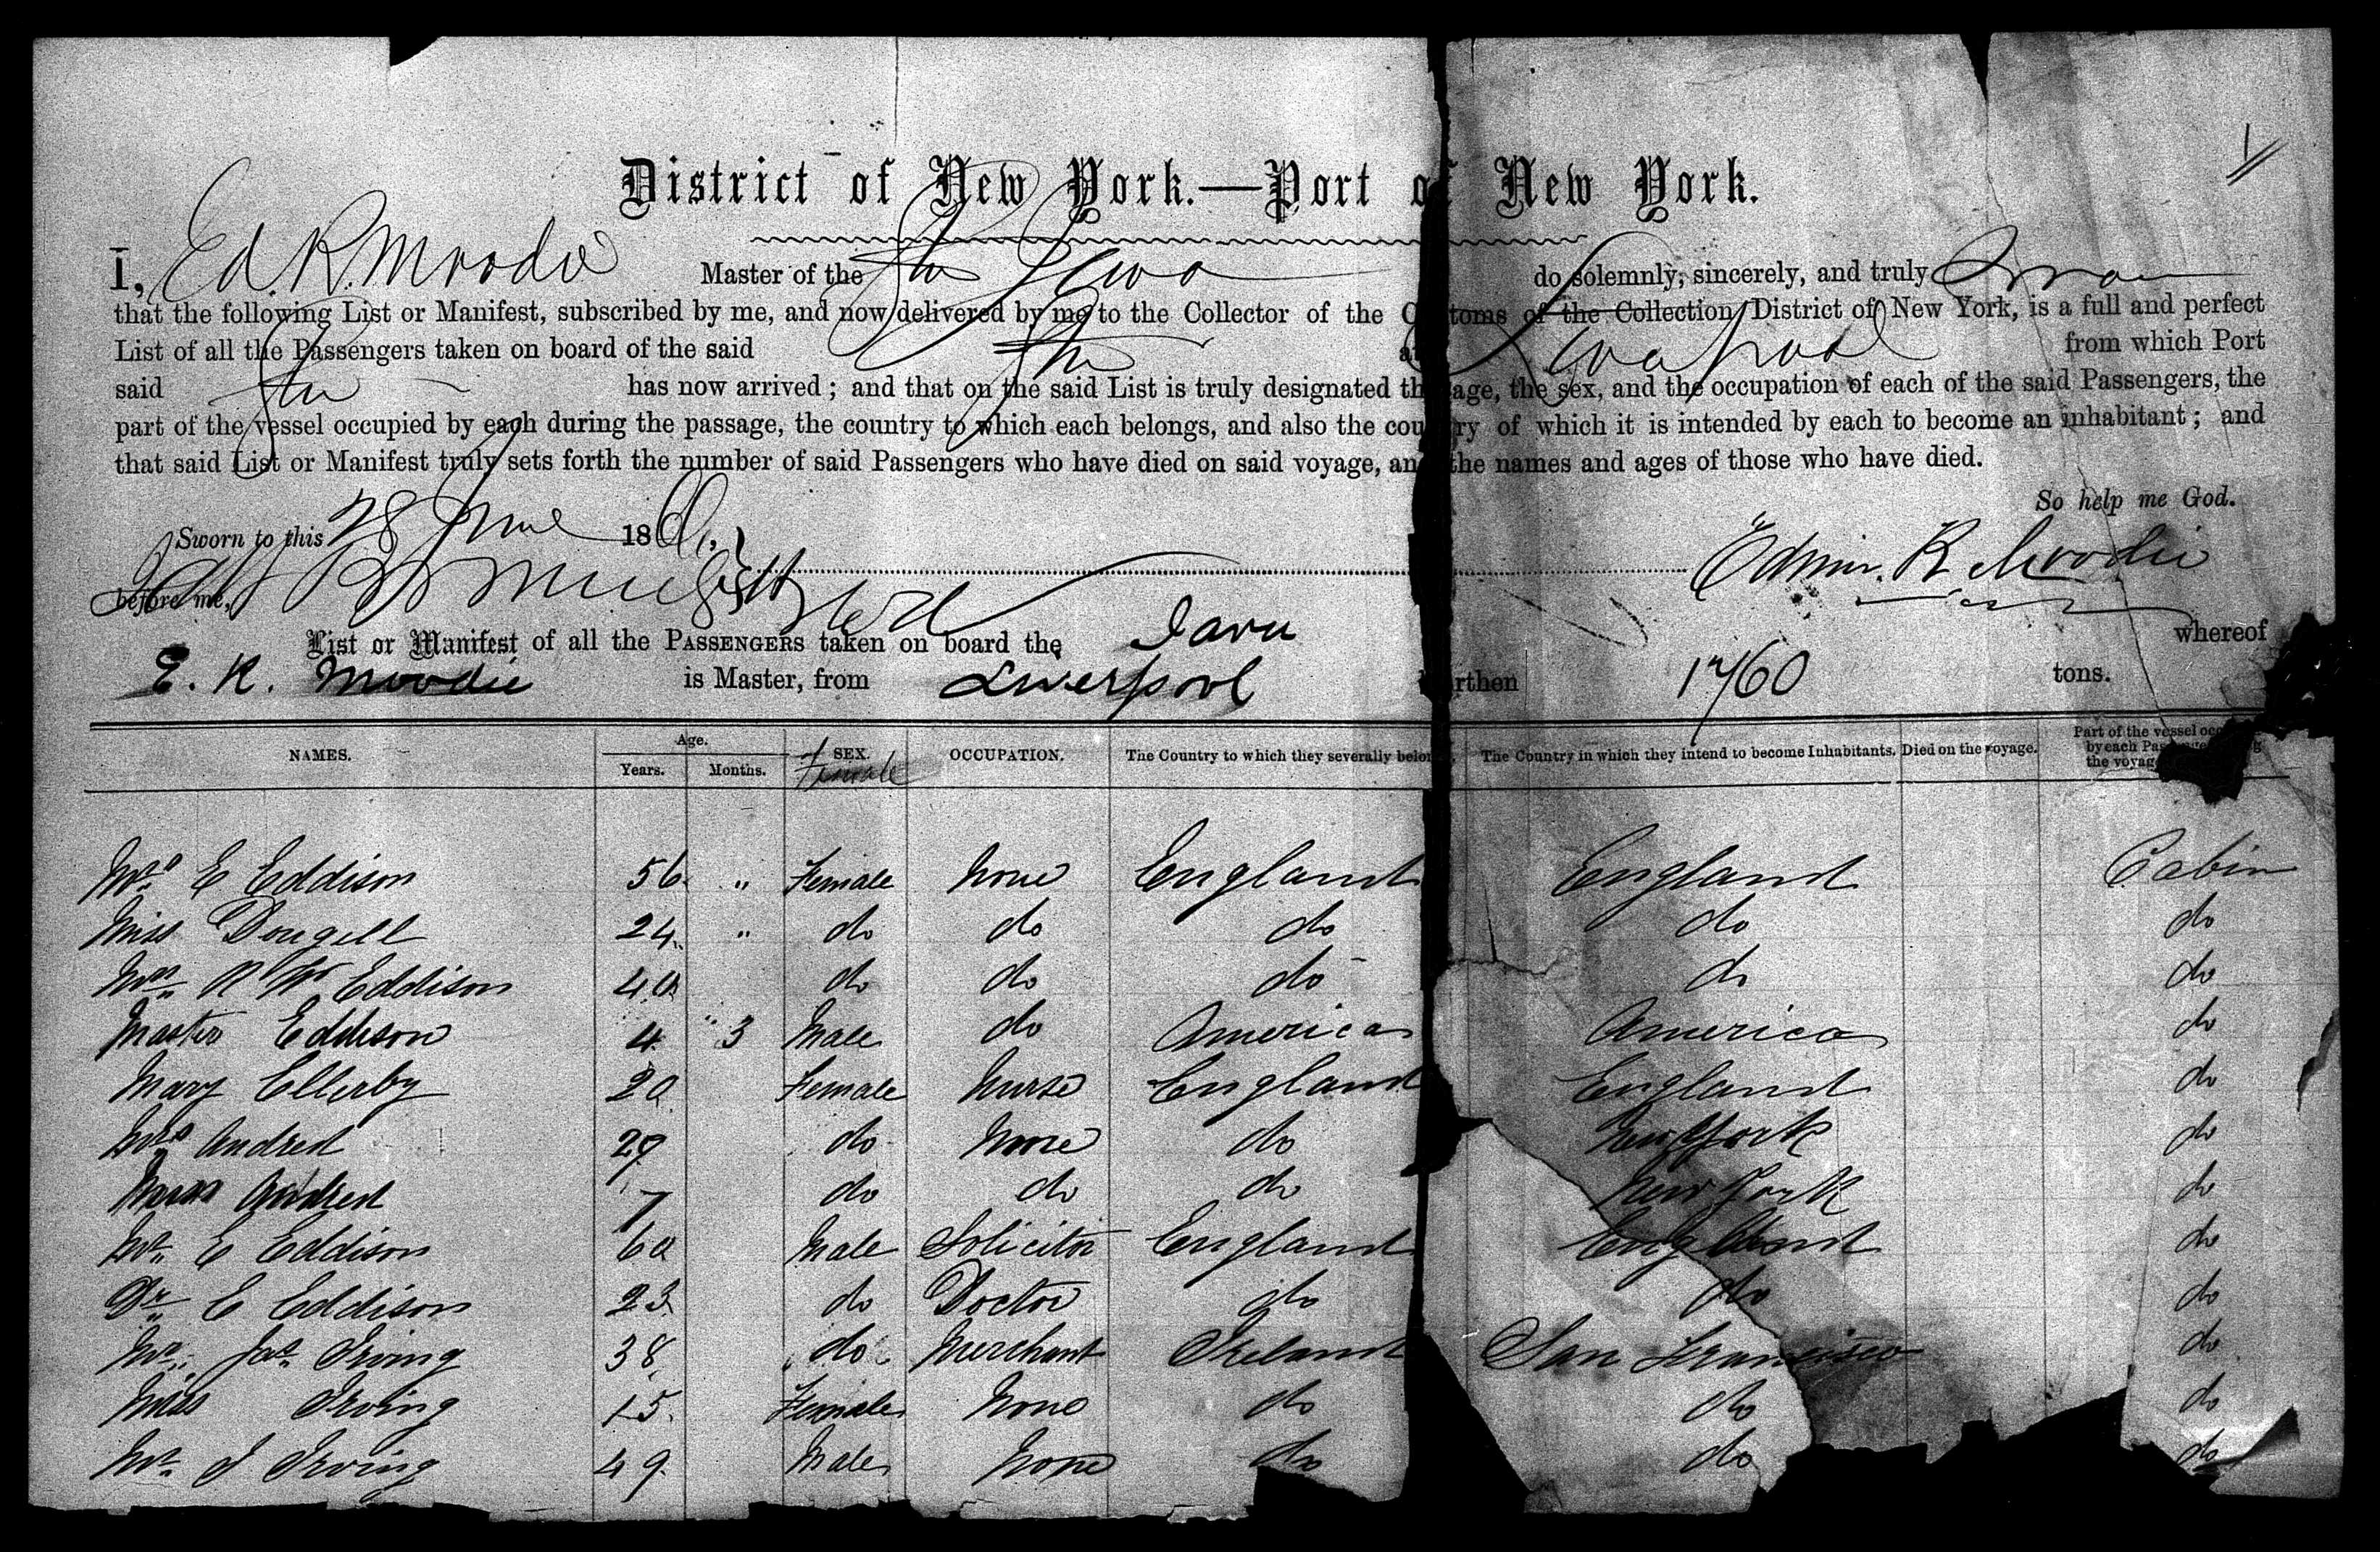 1
District of New York.—Port of New York.
I, Ed. R. Moodie Master of the Str Java do solemnly, sincerely, and truly Swear
that the following List or Manifest, subscribed by me, and now delivered by me to the Collector of the Customs of the Collection District of New York, is a full and perfect
List of all the Passengers taken on board of the said Str at Liverpool from which Port
said Str has now arrived; and that on the said List is truly designated the age, the sex, and the occupation of each of the said Passengers, the
part of the vessel occupied by each during the passage, the country to which each belongs, and also the country of which it is intended by each to become an inhabitant; and
that said List or Manifest truly sets forth the number of said Passengers who have died on said voyage, and the names and ages of those who have died.
So help me God.
Sworn to this 28 June 186
before me, Edwin. R. Moodie
List or Manifest of all the PASSENGERS taken on board the Java whereof
E. R. Moodie is Master, from Liverpool burthen 1760 tons.
NAMES. Age. Years. Months. SEX. Female OCCUPATION. The Country to which they severally belong. The Country in which they intend to become Inhabitants. Died on the voyage. Part of the vessel occupied by each Passenger during the voyage
Mrs E Eddison 56 " Female None England England Cabin
Miss Dougell 24 " do do do do do
Mrs R W Eddison 40 do do do do do
Master Eddison 4 " 3 Male do America America do
Mary Ellerby 20 Female Nurse England England do
Mrs Andred 29 do None do New York do
Miss Andred 7 do do do New York do
Mr E Eddison 60 Male Solicitor England England do
Dr E Eddison 23 do Doctor do do do
Mr Jas Irving 38 do Merchant Ireland San Francisco do
Miss Irving 15 Female None do do do
Mr J Irving 49 Male None do do do